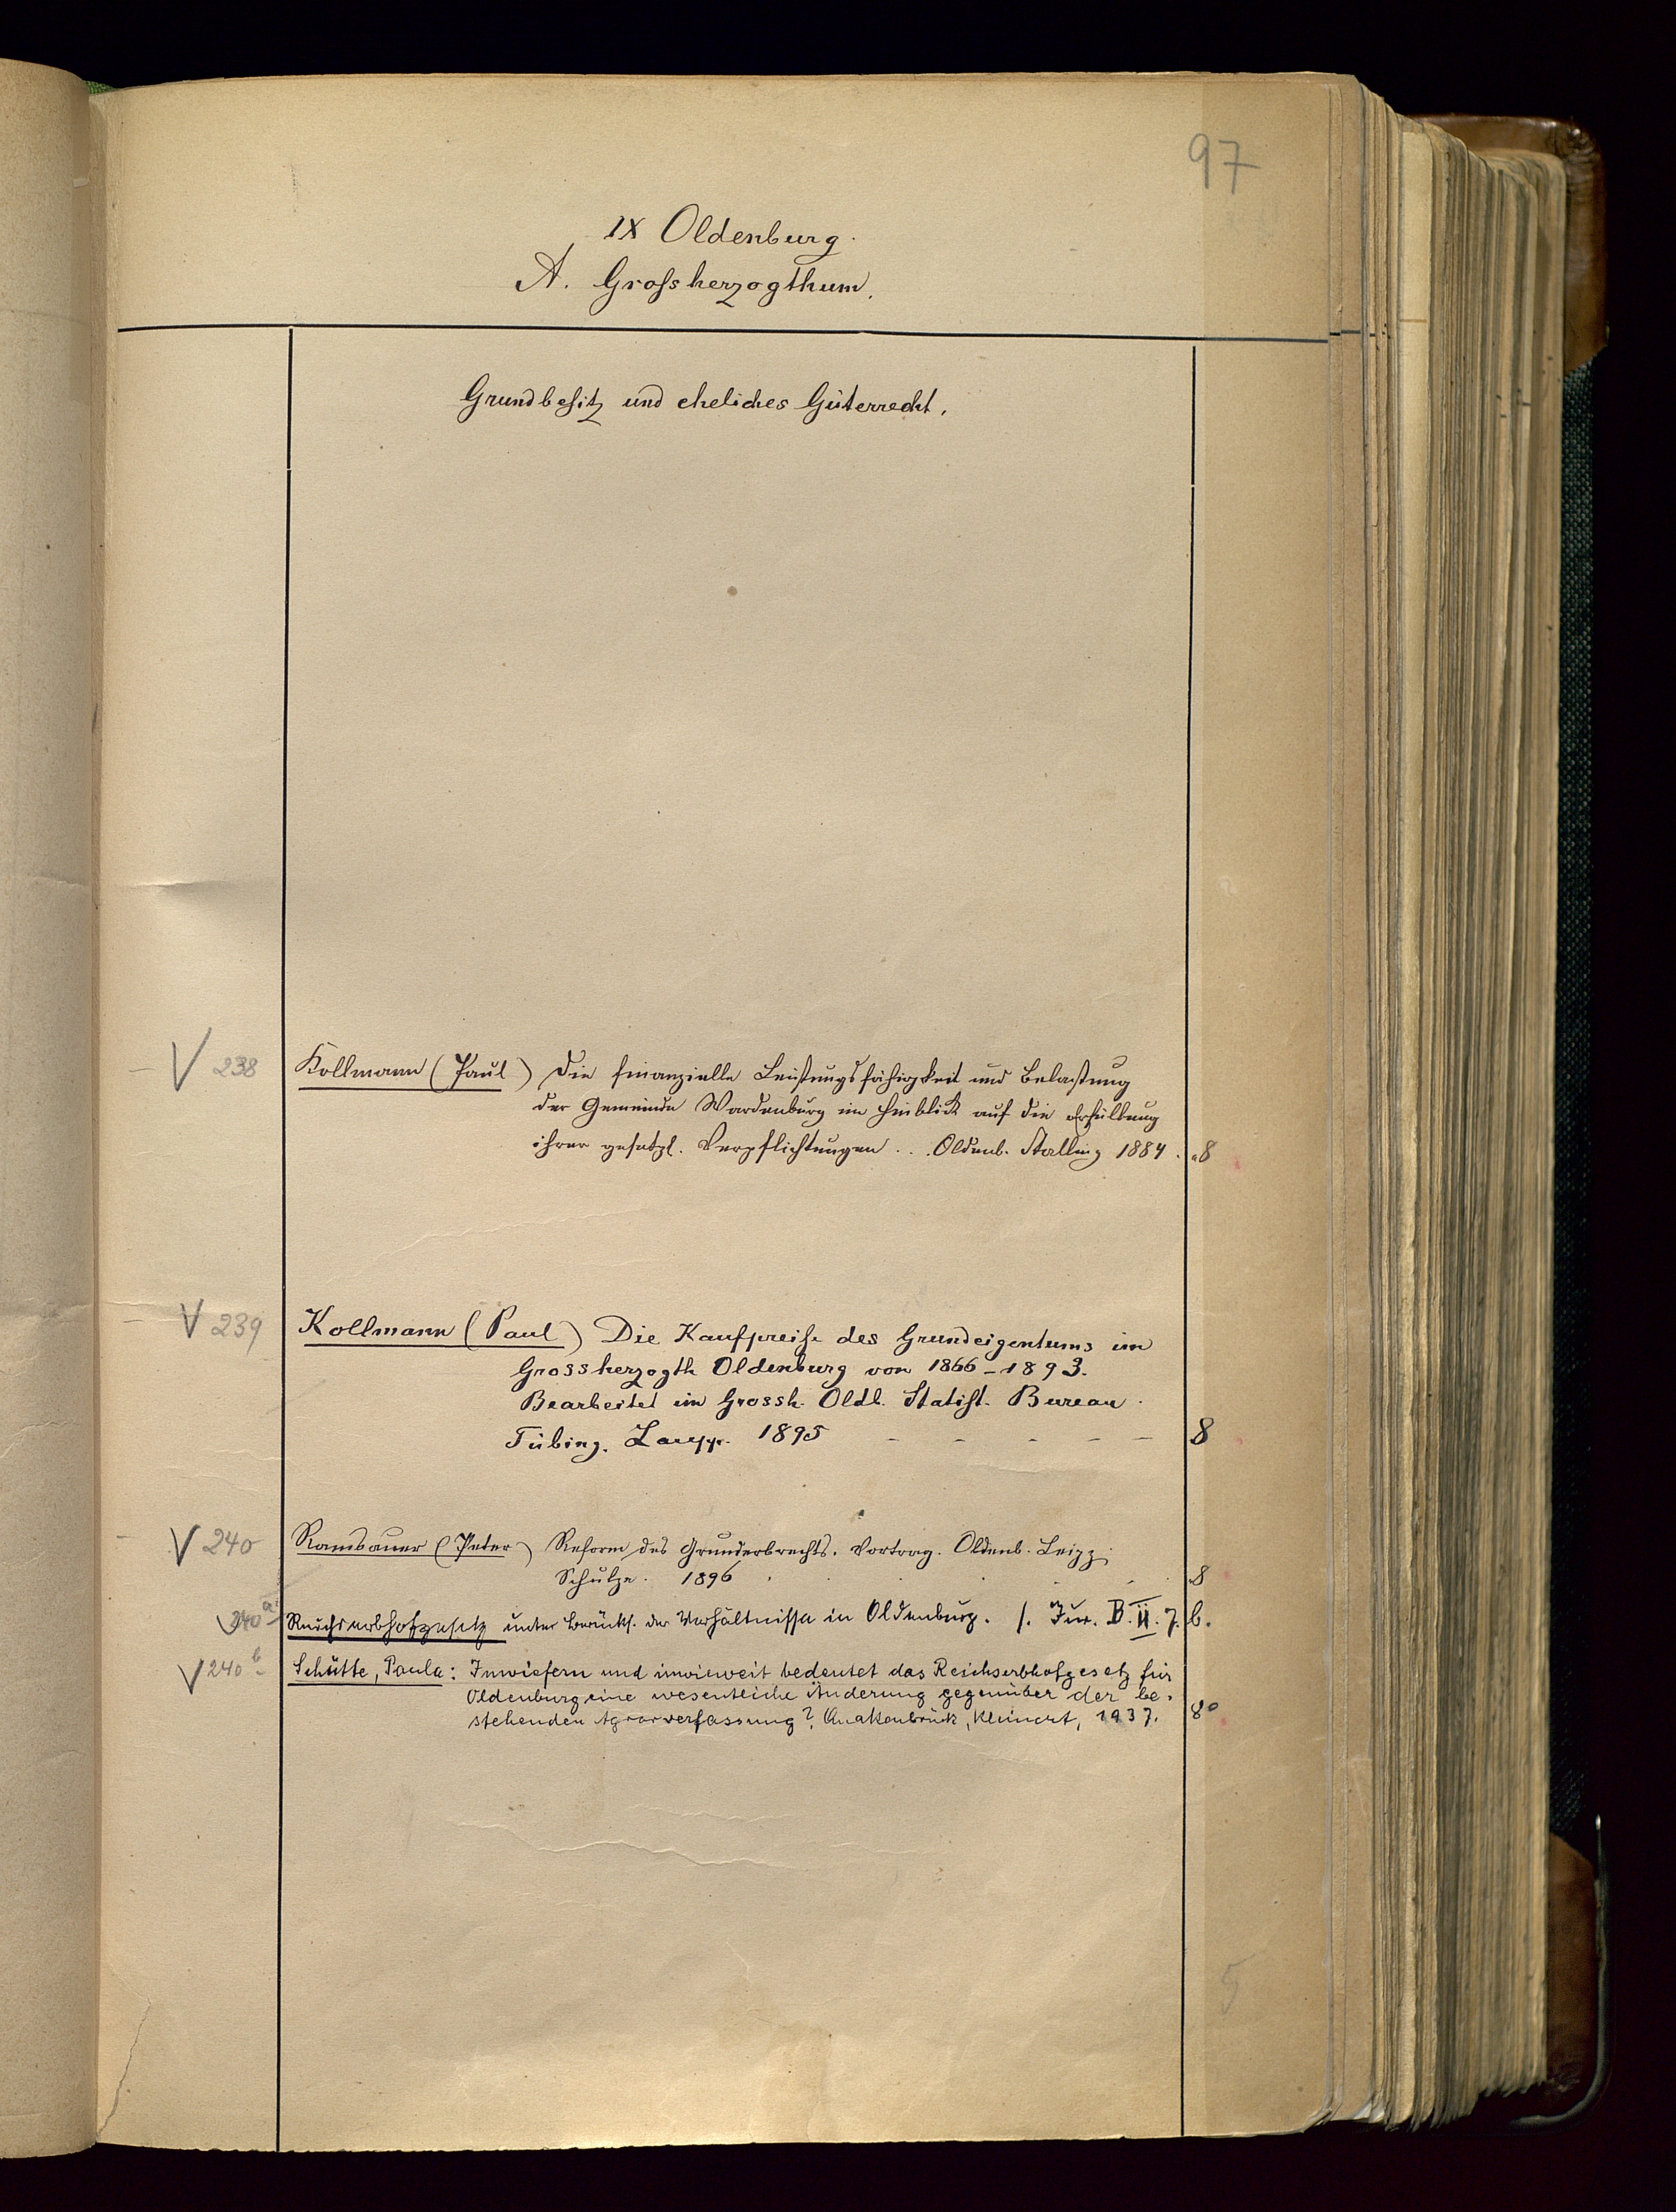 97
IX Oldenburg.
A. Grossherzogthum.
Grundbesitz und eheliches Güterrecht.
V 238 Kollmann (Paul) Die finanzielle Leistungsfähigkeit und Belastung
der Gemeinde Wardenburg im Hinblick auf die Erfüllung
ihrer gesetzl. Verpflichtungen . . . Oldenb. Stalling 1884 . 8
V 239 Kollmann (Paul) Die Kaufpreise des Grundeigentums im
Grossherzogth Oldenburg von 1866-1893.
Bearbeitet im Grossh. Oldb. Statist. Bureau.
Tübing. Laupp. 1895 - - - - - 8
V 240 Ramsauer (Peter) Reform des Grunderbrechts. Vortrag. Oldenb. Leipz.
Schulze. 1896 . . . . . 8
V 240a Reichserbhofgesetz unter Berücks. der Verhältnisse in Oldenburg. s. Jur. B. II. 7. b.
V 240b Schütte, Paula: Inwiefern und inwieweit bedeutet das Reichserbhofgesetz für
Oldenburg eine wesentliche Änderung gegenüber der be-
stehenden Agrarverfassung? Quakenbrück, Kleinert, 1937. 8°
5